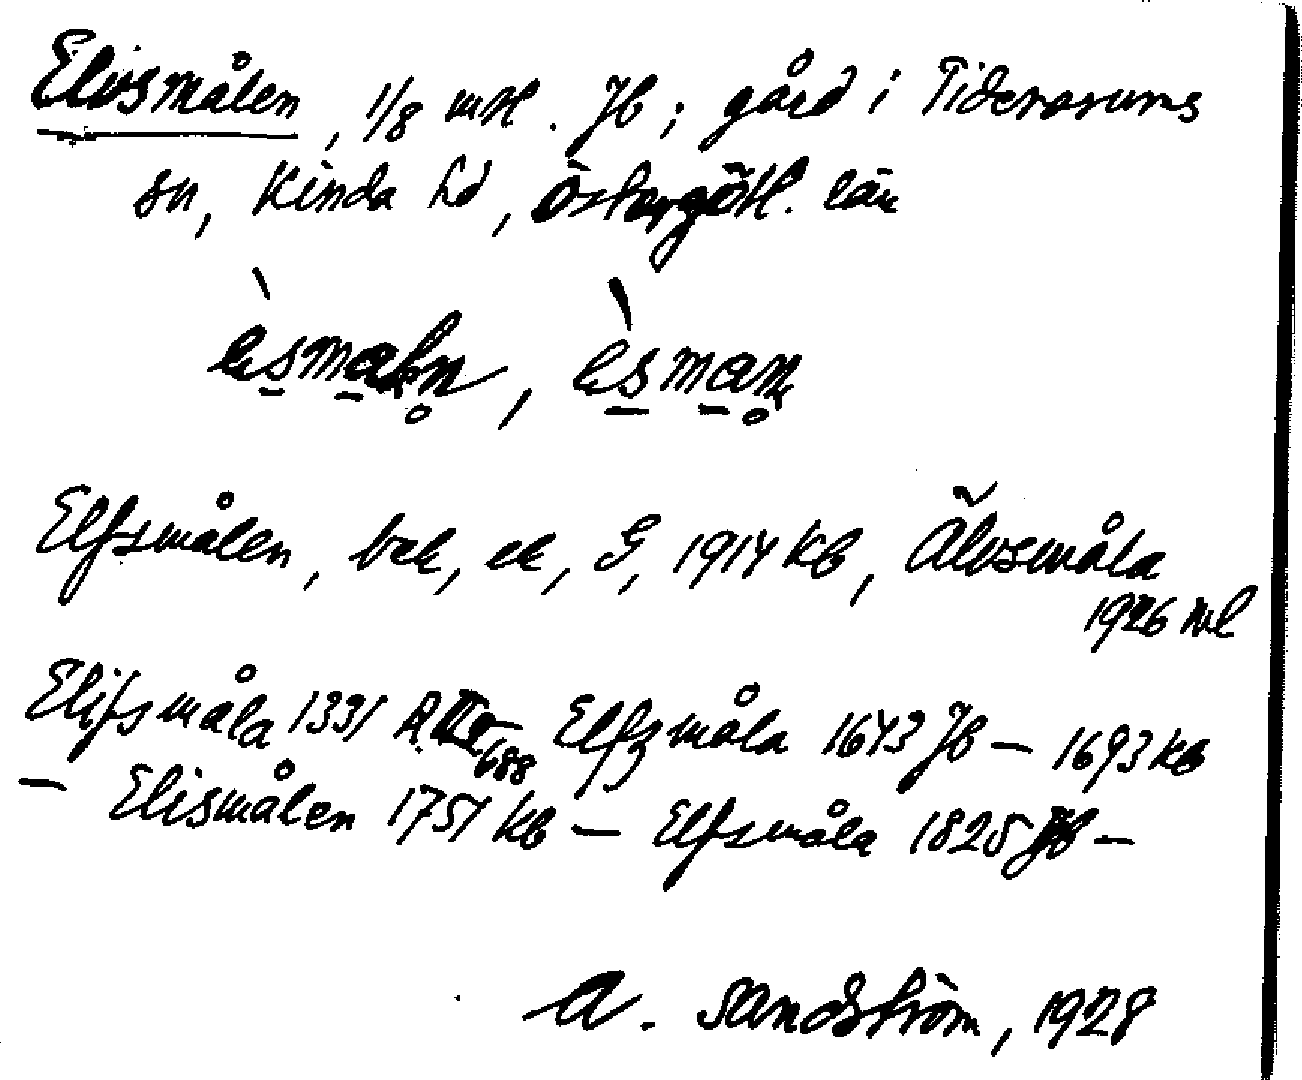 Elvsmålen, 1/8 mtl. Jb; gård i Tidersrums
sn, Kinda hd, Östergötl. län
Elfsmålen, bek, ek, G, 1914 Kb, Älvsmåla
1926 tvl
Elifsmåla 1331 Elfzmåla 1643 Jb — 1693 Kb
— Elismålen 1751 Kb — Elfsmåla 1825 Jb —
A. Sandström, 1928